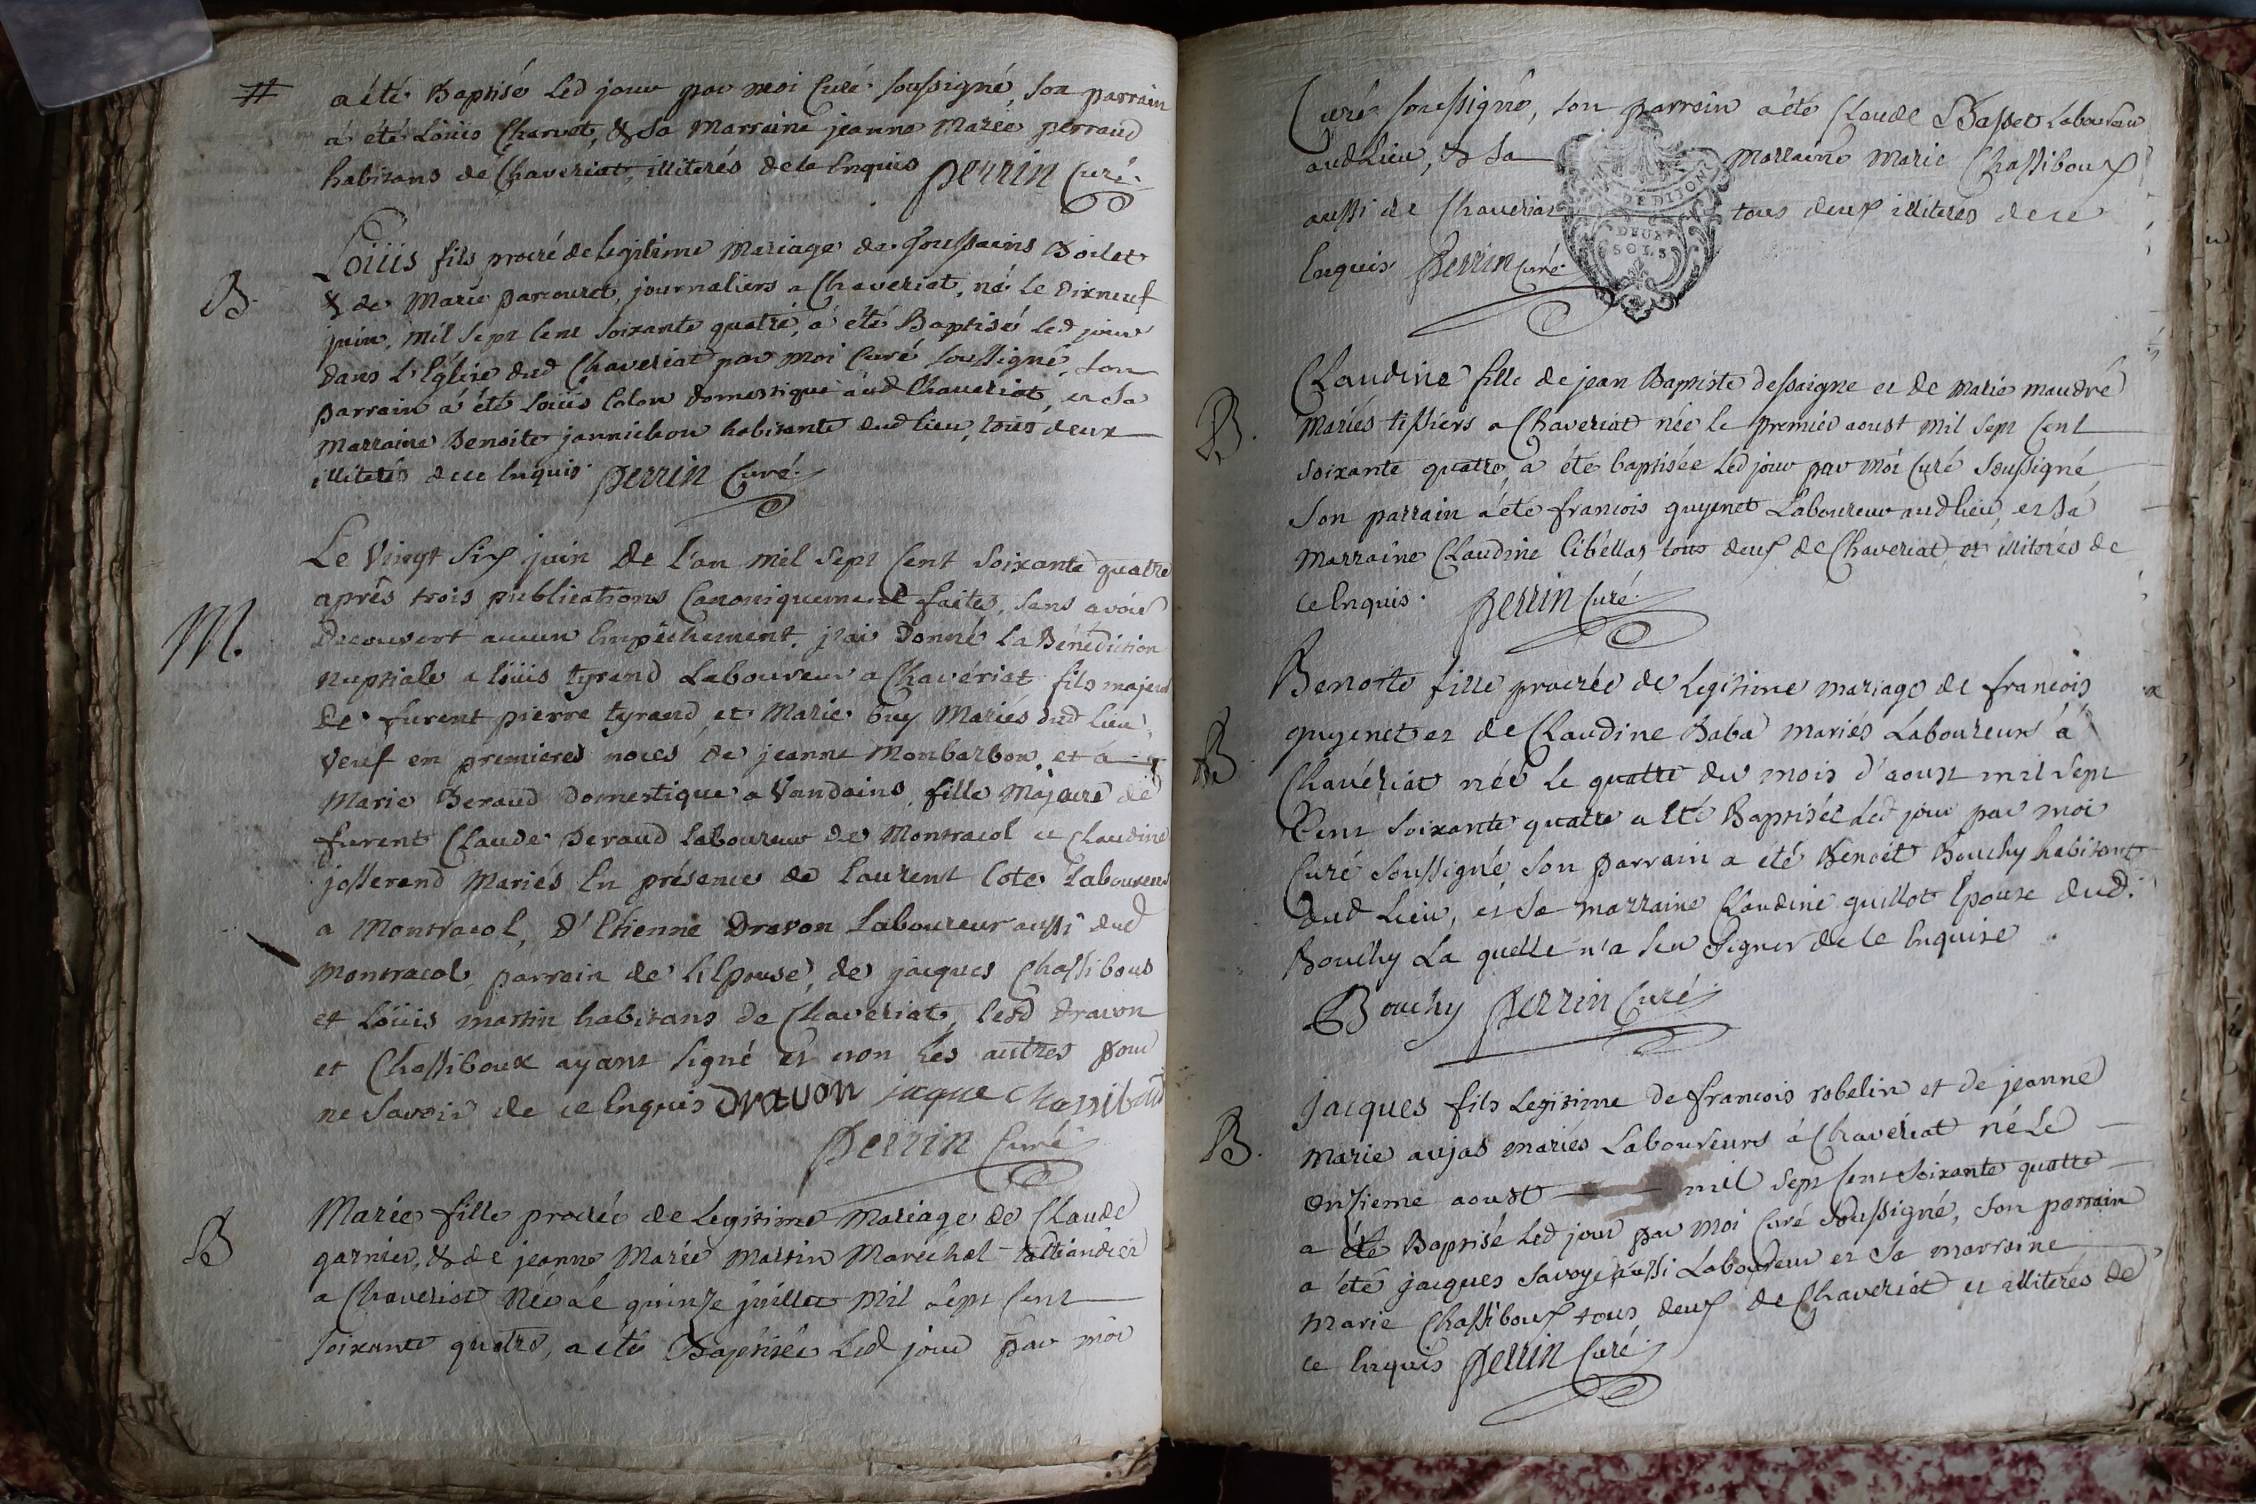 # a été Baptisé led jour par moi Curé soussigné, son parrain
a été Loüis Charvet, & sa Marraine jeanne Marie perraud
habitans de Chaveriat, illiterés de ce Enquis perrin Curé
Loüis fils procréé de legitime Mariage de Toussains Boilet
B. & de Marie parcouret, journaliers a Chaveriat, né le dixneuf
juin, mil sept Cent soixante quatre, a été Baptisé led jour
dans L'Eglise dud Chaveriat par moi Curé soussigné, son
parrain a été Loüis Colon domestique aud Chaveriat, et sa
Marraine Benoite jannichon habitante dud lieu, tous deux
illiterés de ce Enquis perrin Curé
Le Vingt Six juin de L'an mil sept Cent soixante quatre
après trois publications Canoniquement faites, sans avoir
M. Decouvert aucun Empêchement, j'ai donné La Bénédiction
nuptiale a Loüis tyrand Laboureur a Chavériat fils majeur
de furent pierre tyrand et Marie buy Mariés dud Lieu,
Veuf en premieres noces de jeanne Monbarbon, et a
Marie Beraud Domestique a Vandains, fille Majeure de
furent Claude Beraud laboureur de Montracol et Claudine
josserand Mariés En présence de Laurent Cote Laboureur
a Montracol, D'Etienne Dravon Laboureur aussi dud
Montracol, parrain de L'Epouse, de jacques Chassiboux
et Loüis martin habitans de Chaveriat, lesd Dravon
et Chassiboux ayant signé et non les autres pour
ne Savoir de ce Enquis Dravon jaque Chassiboud
Perrin Curé
Marie fille procréée de Legitime Mariage de Claude
B garnier, & de jeanne Marie Martin Maréchal taillandier
a Chaveriat Née Le quinze juillet Mil sept Cent
soixante quatre, a été Baptisée Led jour par moi
Curé soussigné, son parrain a été Claude Basset Laboureur
aud Lieu, & sa Marraine Marie Chassiboux
aussi de Chaveriat tous deux illiterés de ce
Enquis Perrin Curé
DEUX
SOLS
Claudine fille de jean Baptiste dessaigne et de Marie maudré
B. Mariés tissiers a Chaveriat née le premier aoust Mil sept Cent
soixante quatre, a été baptisée Led jour par moi Curé soussigné
son parrain a été francois guyenet Laboureur aud lieu, et sa
Marraine Claudine Cibellas, tous deux de Chaveriat, et illiterés de
ce Enquis. Perrin Curé
Benoite fille procréée de Legitime mariage de francois
B guyenet et de Claudine Baba mariés Laboureurs à
Chavériat née le quatre du mois d'aoust mil sept
Cent soixante quatre a été Baptisée Led jour par moi
Curé soussigné, son parrain a été Benoit Bouchy habitant
dud Lieu, et sa marraine Claudine guillot Epouse dud.
Bouchy La quelle n'a seu signer de ce Enquise
Bouchy Perrin Curé
Jacques fils Legitime de francois robelin et de jeanne
B. Marie aujas mariés Laboureurs à Chavériat né Le
onzieme aoust mil sept Cent soixante quatre
a été Baptisé Led jour par moi Curé soussigné, son parrain
a été jacques Savoye aussi Laboureur et sa marraine
Marie Chassiboux tous deux de Chaveriat et illiterés de
ce Enquis Perrin Curé